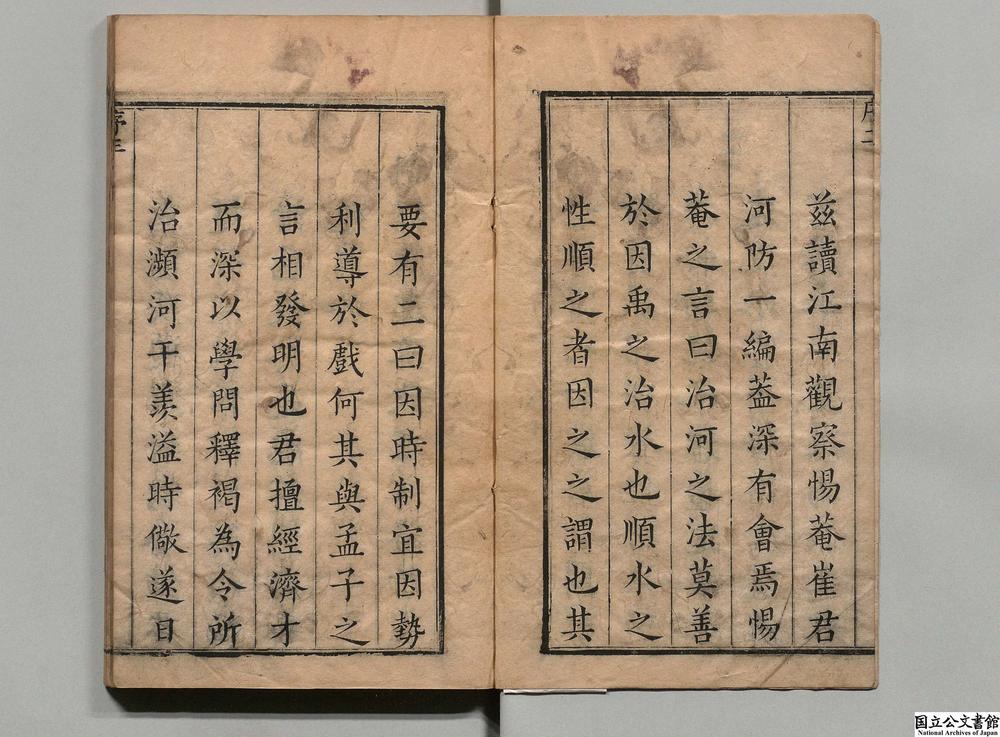 序二
兹讀江南觀察惕菴崔君
河防一編葢深有會焉惕
菴之言曰治河之法莫善
於因禹之治水也順水之
性順之者因之之謂也其
要有二曰因時制宜因勢
利導於戲何其與孟子之
言相發明也君擅經濟才
而深以學問釋褐為令所
治瀕河干羨溢時儆遂日
序三
国立公文書館
National Archives of Japan